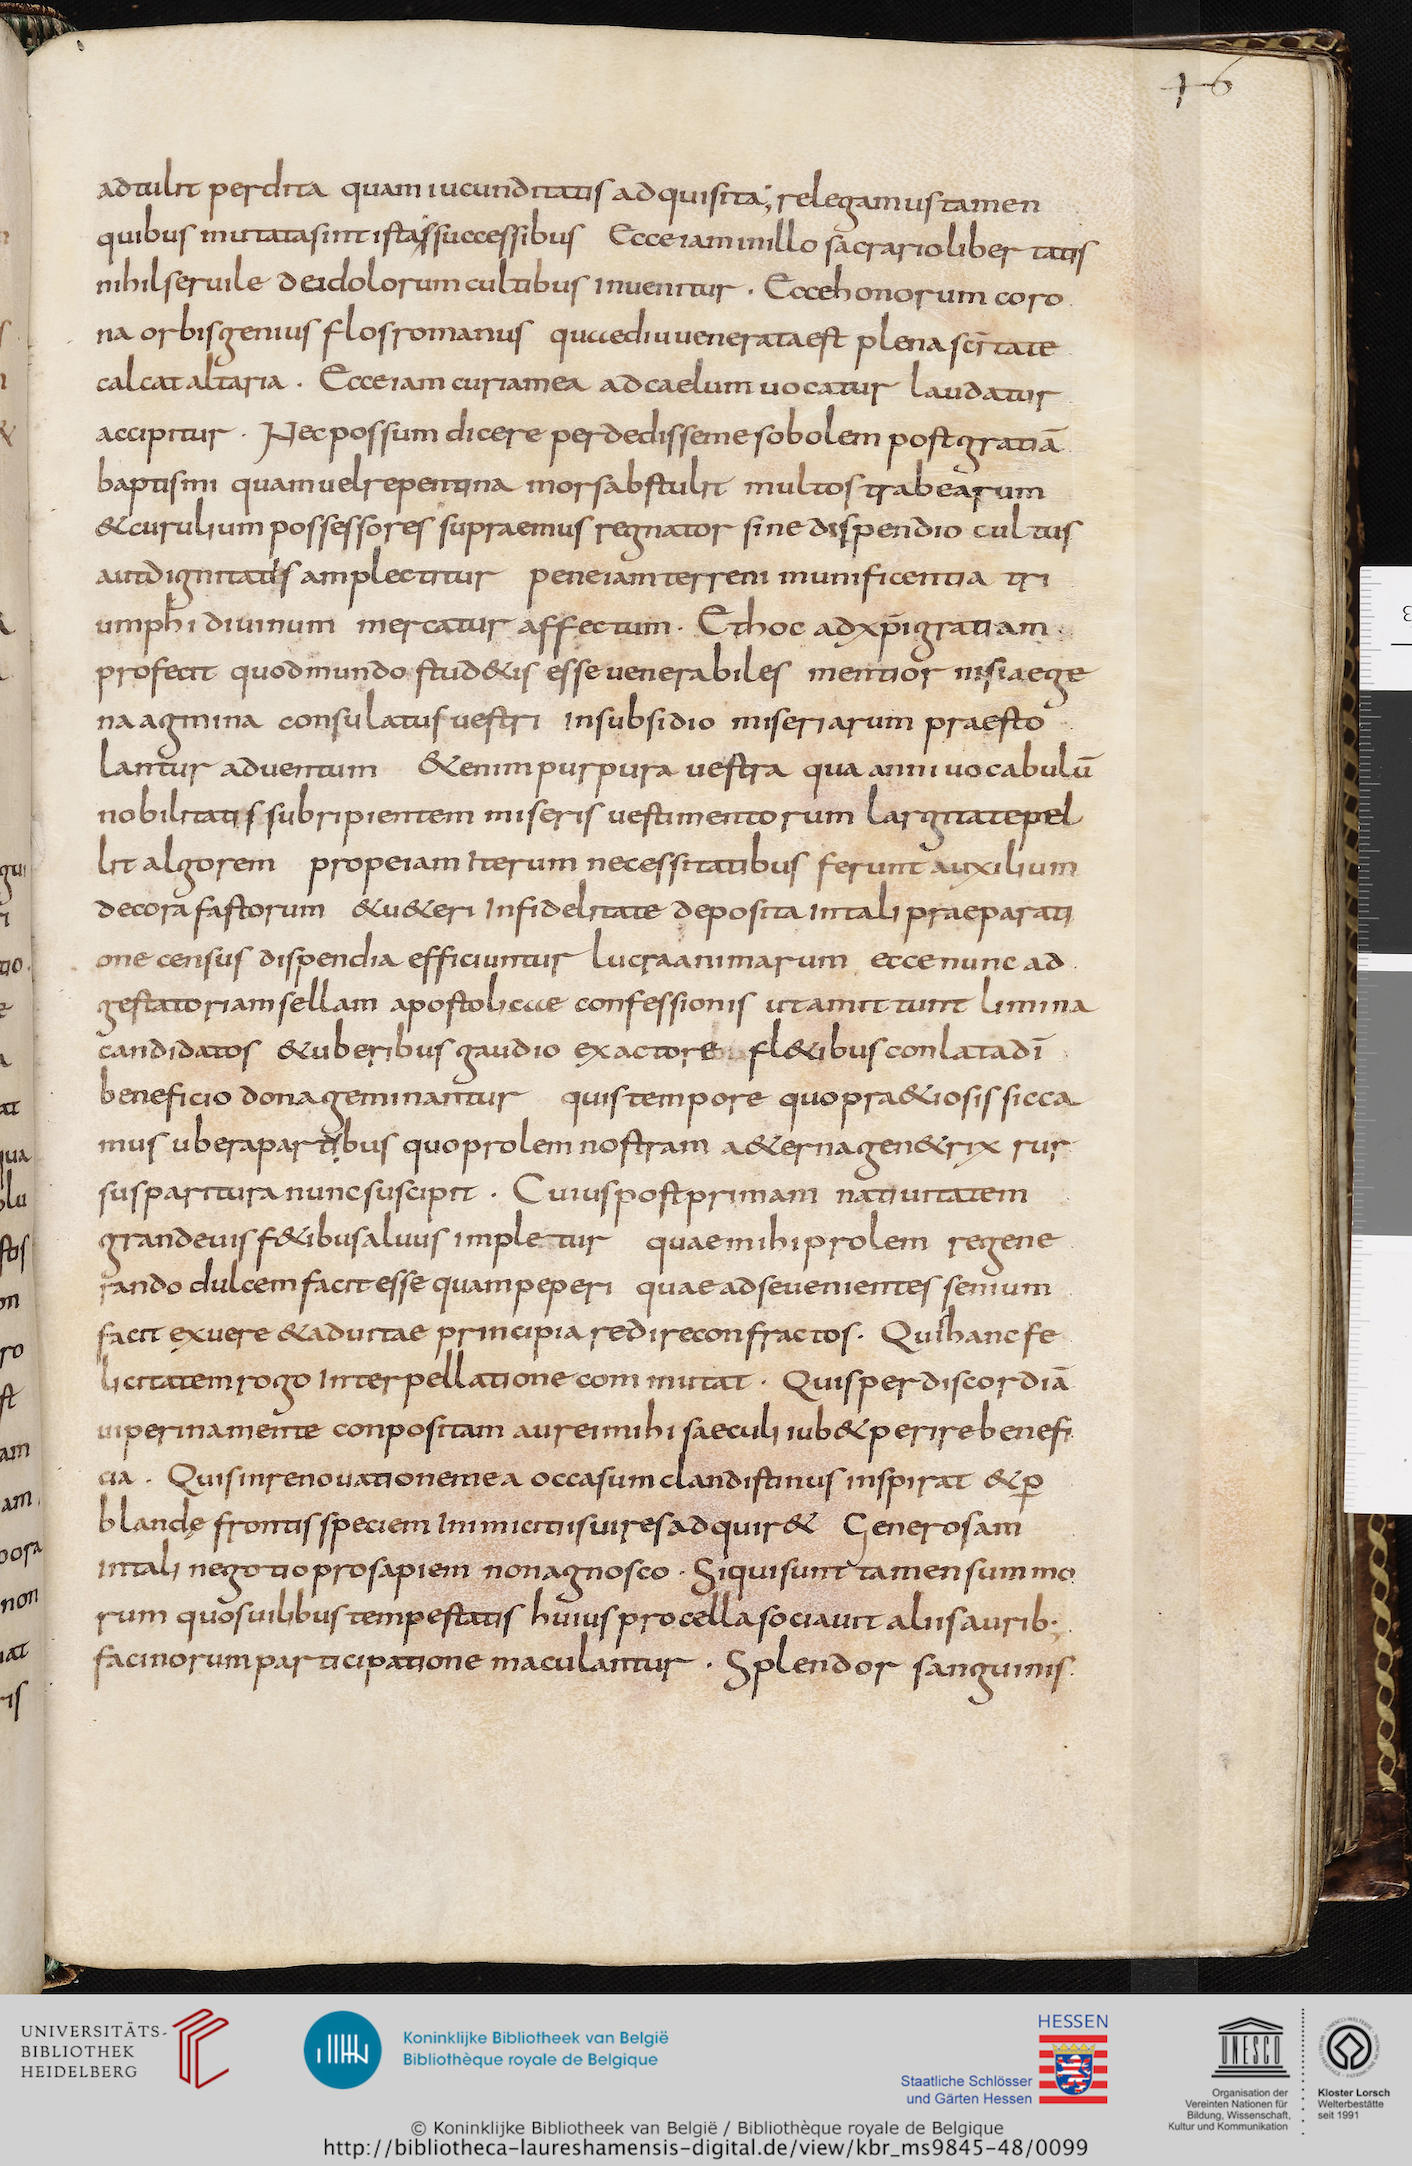 46
adtulit perdita quam iucunditatis adquisita; relegamus tamen
quibus mutata sint ista successibus Ecce iam in illo sacrario libertatis
nihil servile de idolorum cultibus invenitur. Ecce honorum coro
na orbis genius flos romanus quae diu venerata est plena scītate
calcat altaria. Ecce iam curia mea ad caelum vocatur laudatur
accipitur. Nec possum dicere perdedisse me sobolem post gratiā
baptismi quam vel repentina mors abstulit multos trabearum
& curulium possessores supraemus regnator sine dispendio cultus
aut dignitatis amplectitur pene iam terreni munificentia tri
umphi divinum mercatur affectum. Et hoc ad xp̄i gratiam
profecit quod mundo stud&is esse venerabiles mentior nisi aege
na agmina consulatus vestri in subsidio miseriarum praesto
lantur adventum &enim purpura vestra qua anni vocabulū
nobilitatis subripientem miseris vestimentorum largitate pel
lit algorem prope iam iterum necessitatibus ferunt auxilium
decora fastorum &u&eri infidelitate deposita in tali praeparati
one census dispendia efficiuntur lucra animarum ecce nunc ad
gestatoriam sellam apostolicae confessionis ut amittunt limina
candidatos & uberibus gaudio exactore fl&ibus conlata dī
beneficio dona geminantur quis tempore quo pra&iosis sicca
mus ubera partibus quo prolem nostram a&erna gen&rix rur
sus paritura nunc suscipit. Cuius post primam nativitatem
grandevis f&ibus alvus impletur quae mihi prolem regene
rando dulcem facit esse quam peperi quae ad se venientes senium
facit exuere & ad vitae principia redire confractos. Qui hanc fe
licitatem rogo interpellatione commutat. Quis per discordiā
viperina mente conpositam aurei mihi saeculi iub& perire benefi
cia. Quis in renovatione mea occasum clandistinus inspirat & p̱
blandę frontis speciem inimicitiis vires adquir& Generosam
in tali negotio prosapiem non agnosco. Si qui sunt tamen summo
rum quos vilibus tempestatis huius procella sociavit aliis aurib;
facinorum participatione maculantur. Splendor sanguinis
UNIVERSITÄTS-
BIBLIOTHEK
HEIDELBERG
Koninklijke Bibliotheek van België
Bibliothèque royale de Belgique
HESSEN
Staatliche Schlösser
und Gärten Hessen
UNESCO
Organisation der
Vereinten Nationen für
Bildung, Wissenschaft,
Kultur und Kommunikation
Kloster Lorsch
Welterbestätte
seit 1991
© Koninklijke Bibliotheek van België / Bibliothèque royale de Belgique
http://bibliotheca-laureshamensis-digital.de/view/kbr_ms9845-48/0099